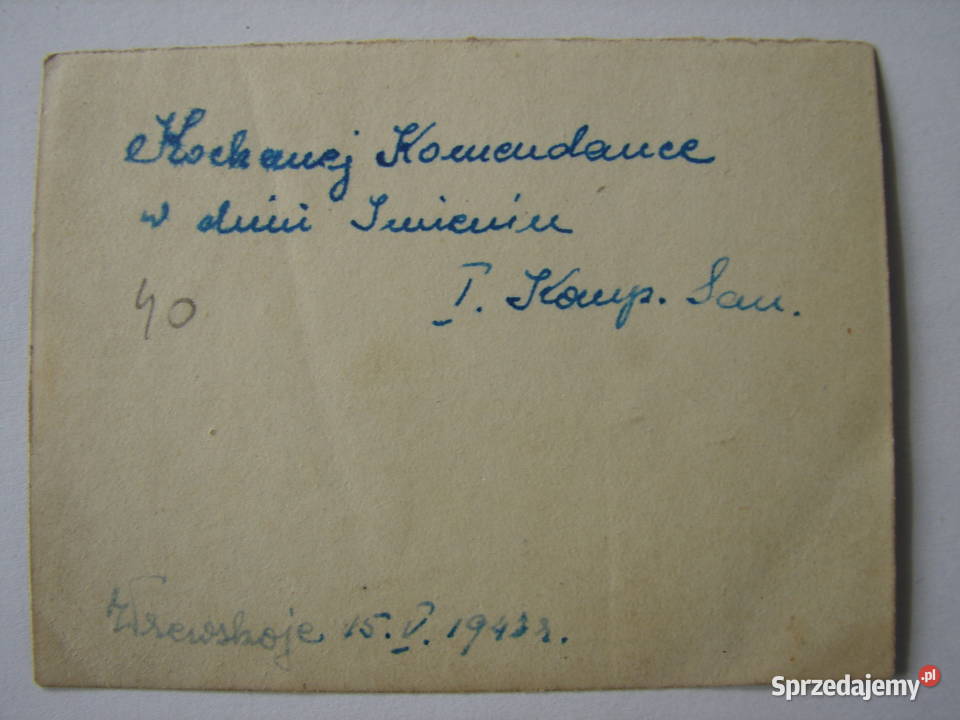 Kochanej Komendance
w dniu Imienin
40
I. Komp. San.
Wrewskoje 15.V.1943 r.
Sprzedajemy.pl